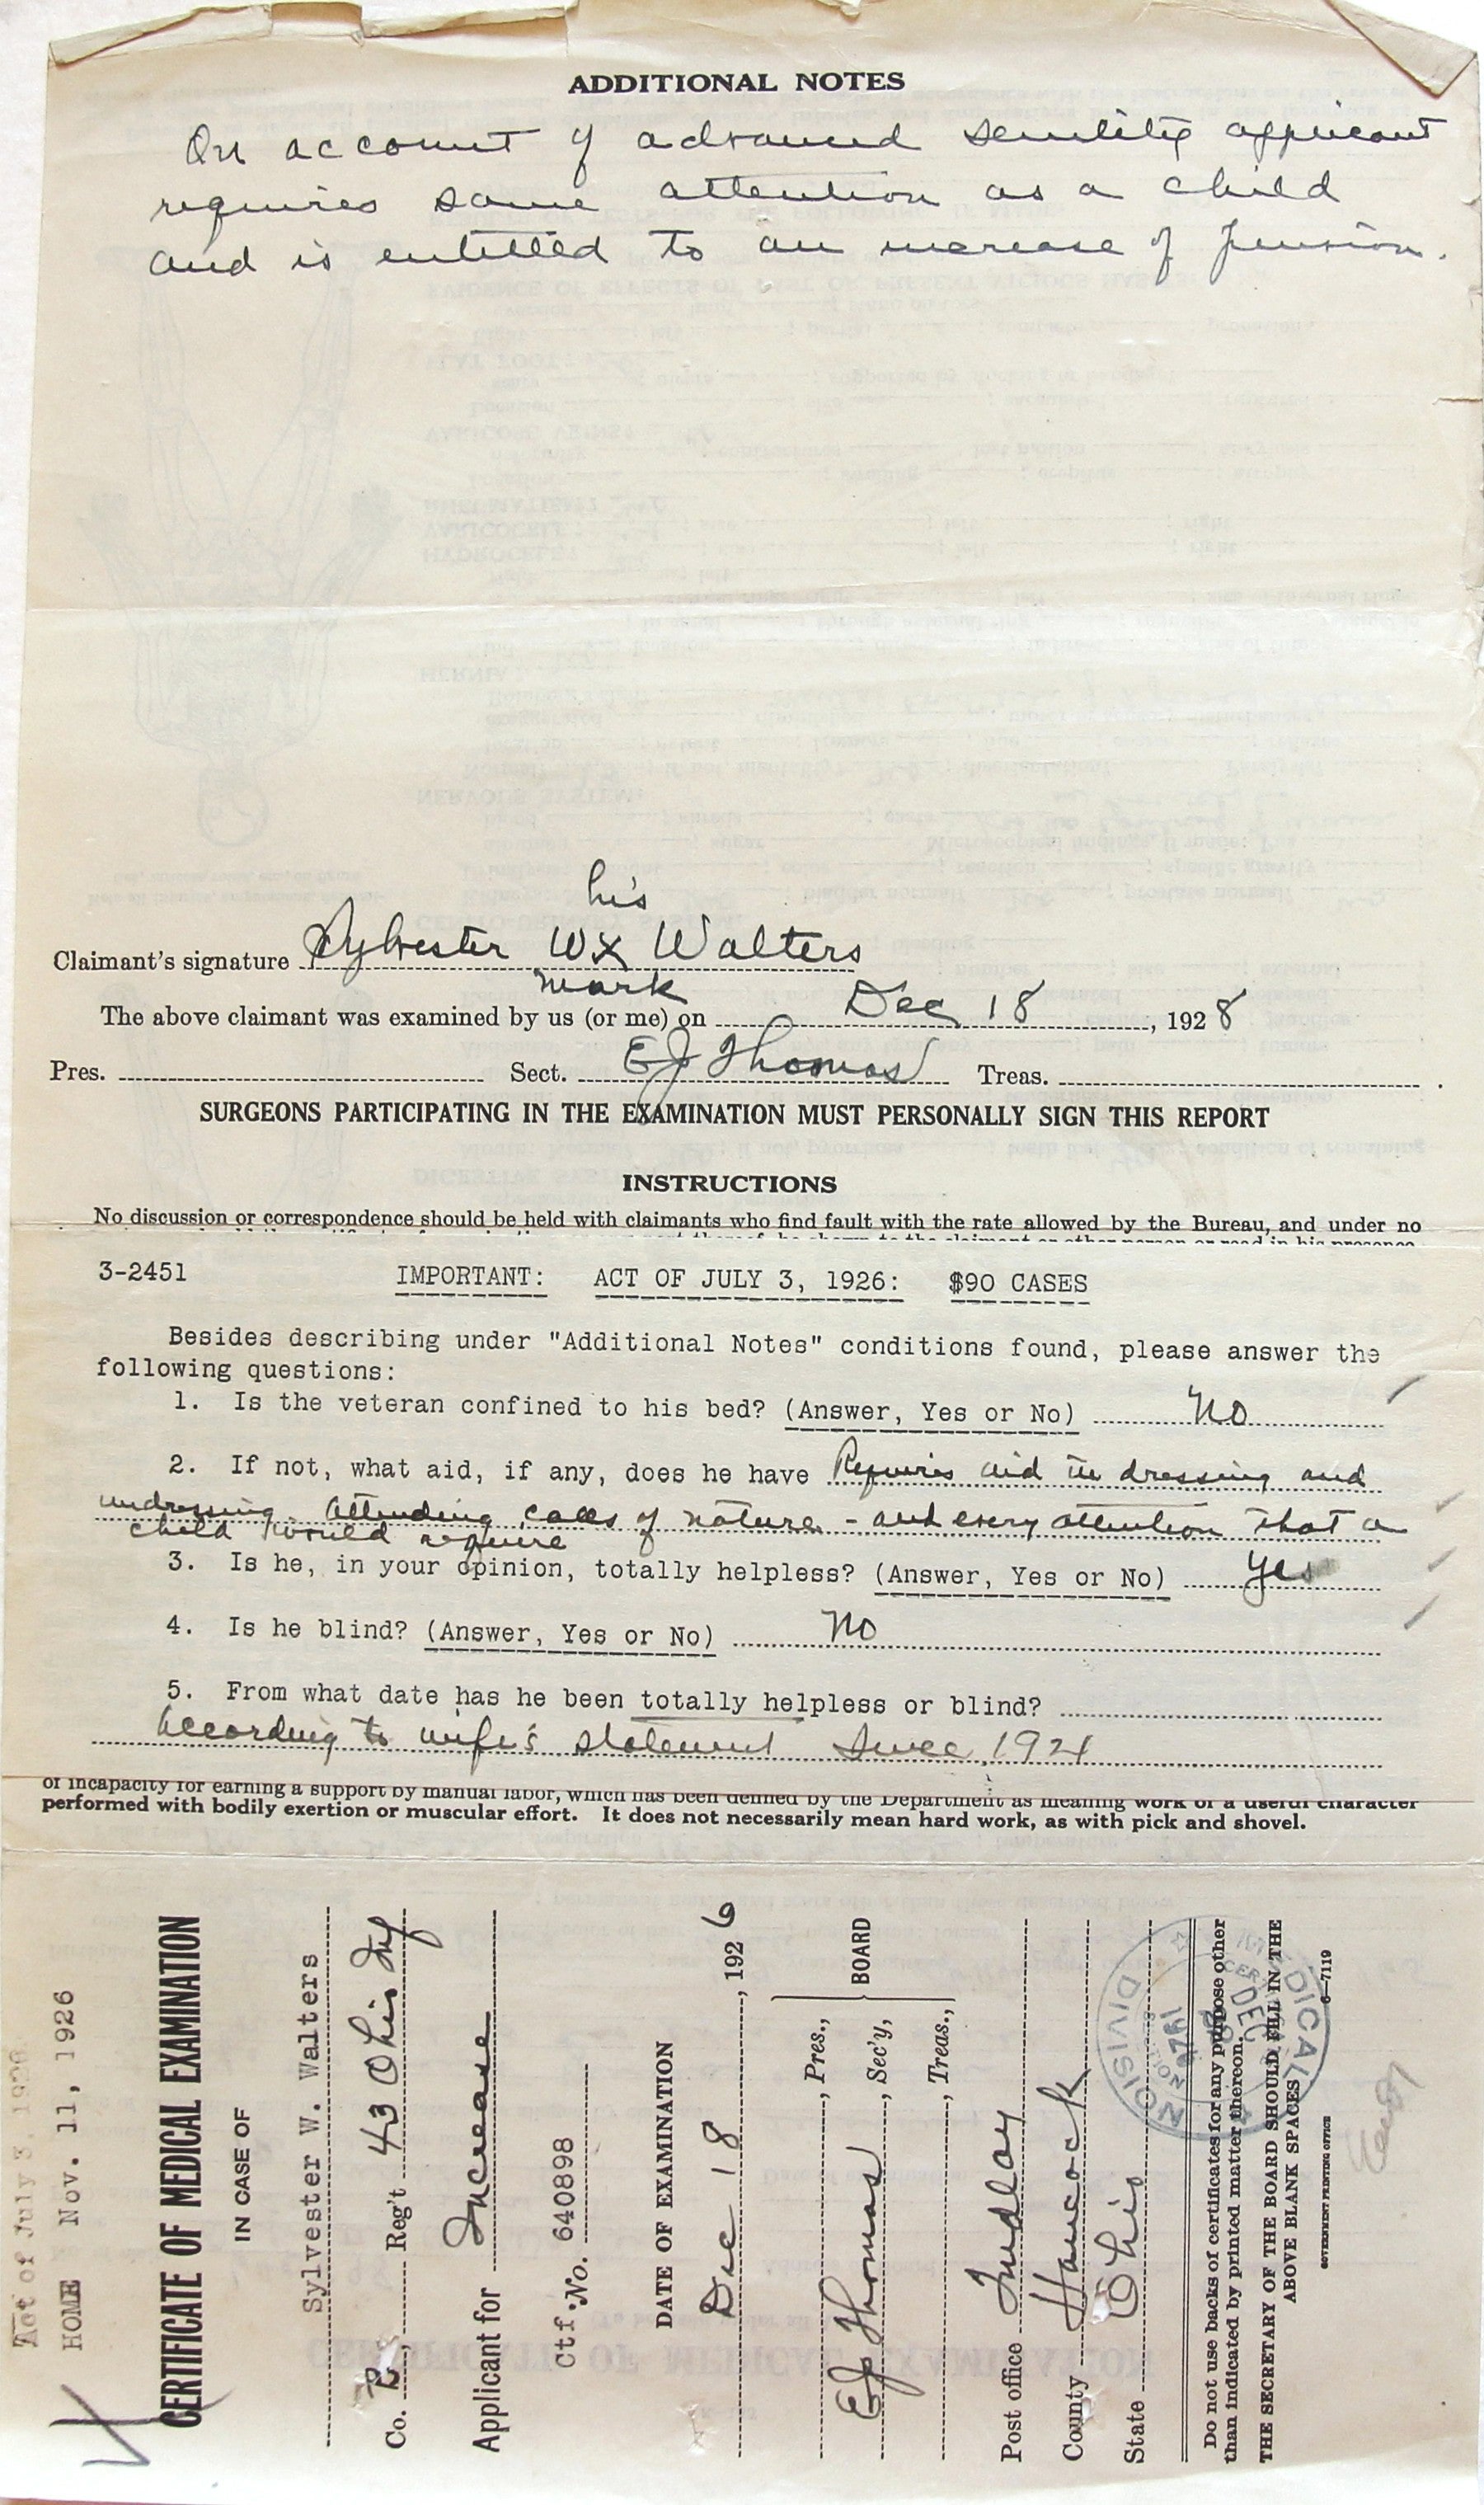 ADDITIONAL NOTES
On account of advanced senility applicant
requires same attention as a child
and is entitled to an increase of pension.
his
Claimant's signature Sylvester W x Walters
mark
The above claimant was examined by us (or me) on Dec 18, 1928
Pres. Sect. EJ Thomas Treas.
SURGEONS PARTICIPATING IN THE EXAMINATION MUST PERSONALLY SIGN THIS REPORT
INSTRUCTIONS
No discussion or correspondence should be held with claimants who find fault with the rate allowed by the Bureau, and under no
3-2451 IMPORTANT: ACT OF JULY 3, 1926: $90 CASES
Besides describing under "Additional Notes" conditions found, please answer the
following questions:
1. Is the veteran confined to his bed? (Answer, Yes or No) No
2. If not, what aid, if any, does he have Requires aid in dressing and
undressing attending calls of nature - and every attention that a
child would require
3. Is he, in your opinion, totally helpless? (Answer, Yes or No) yes
4. Is he blind? (Answer, Yes or No) No
5. From what date has he been totally helpless or blind?
According to wife's statement since 1921
of incapacity for earning a support by manual labor, which has been defined by the Department as meaning work of a useful character
performed with bodily exertion or muscular effort. It does not necessarily mean hard work, as with pick and shovel.
Act of July 3, 1926
HOME Nov. 11, 1926
CERTIFICATE OF MEDICAL EXAMINATION
IN CASE OF
Sylvester W. Walters
Co. B, Reg't 43 Ohio Inf
Applicant for Increase
Ctf. No. 640898
DATE OF EXAMINATION
Dec 18, 1926
, Pres.,
EJ Thomas, Sec'y, BOARD
, Treas.,
Post office Findlay
County Hancock
State Ohio
Do not use backs of certificates for any purpose other
than indicated by printed matter thereon.
THE SECRETARY OF THE BOARD SHOULD FILL IN THE
ABOVE BLANK SPACES
GOVERNMENT PRINTING OFFICE 6-7119
MEDICAL DIVISION
DEC